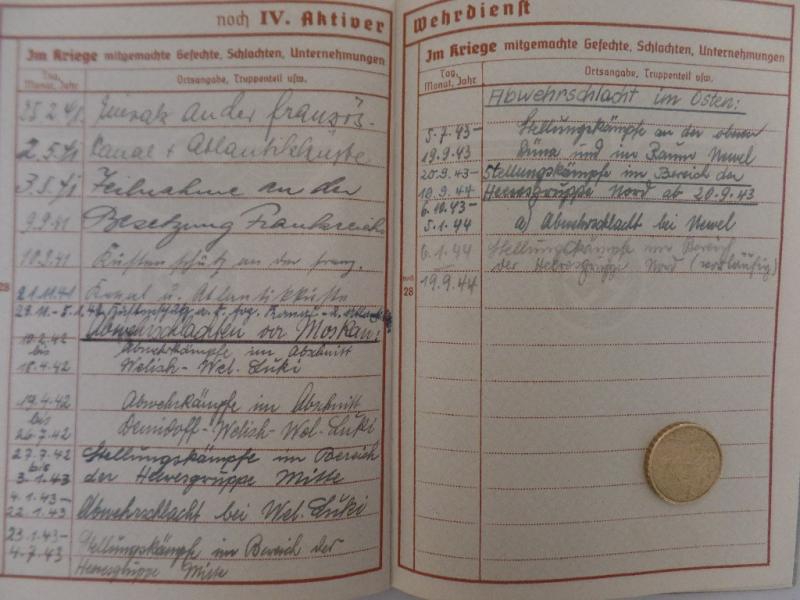 noch IV. Aktiver
Im Kriege mitgemachte Gefechte, Schlachten, Unternehmungen
Tag, Monat, Jahr
Ortsangabe, Truppenteil usw.
25.2.41 Einsatz an der französ.
2.5.41 Kanal + Atlantikküste
3.5.41 Teilnahme an der
9.9.41 Besetzung Frankreichs
10.9.41 Küstenschutz an der franz.
21.11.41 Kanal u. Atlantikküste
22.11.-5.1.42 Küstenschutz a. d. frz. Kanal- u.
Abwehrschlachten vor Moskau:
10.2.42 Abwehrkämpfe im Abschnitt
bis
18.4.42 Welish-Wel. Luki
19.4.42 Abwehrkämpfe im Abschnitt
bis
26.7.42 Demidoff-Welish-Wel. Luki
27.7.42 Stellungskämpfe im Bereich
bis
3.1.43 der Heeresgruppe Mitte
4.1.43-
22.1.43 Abwehrschlacht bei Wel. Luki
23.1.43- Stellungskämpfe im Bereich der
4.7.43 Heeresgruppe Mitte
28
Wehrdienst
Im Kriege mitgemachte Gefechte, Schlachten, Unternehmungen
Tag, Monat, Jahr
Ortsangabe, Truppenteil usw.
Abwehrschlacht im Osten:
5.7.43- Stellungskämpfe an der oberen
19.9.43 Düna und im Raum Newel
20.9.43- Stellungskämpfe im Bereich der
19.9.44 Heeresgruppe Nord ab 20.9.43
6.10.43-
5.1.44 a) Abwehrschlacht bei Newel
6.1.44 Stellungskämpfe im Bereich
der Heeresgruppe Nord (vorläufig)
19.9.44
noch
28